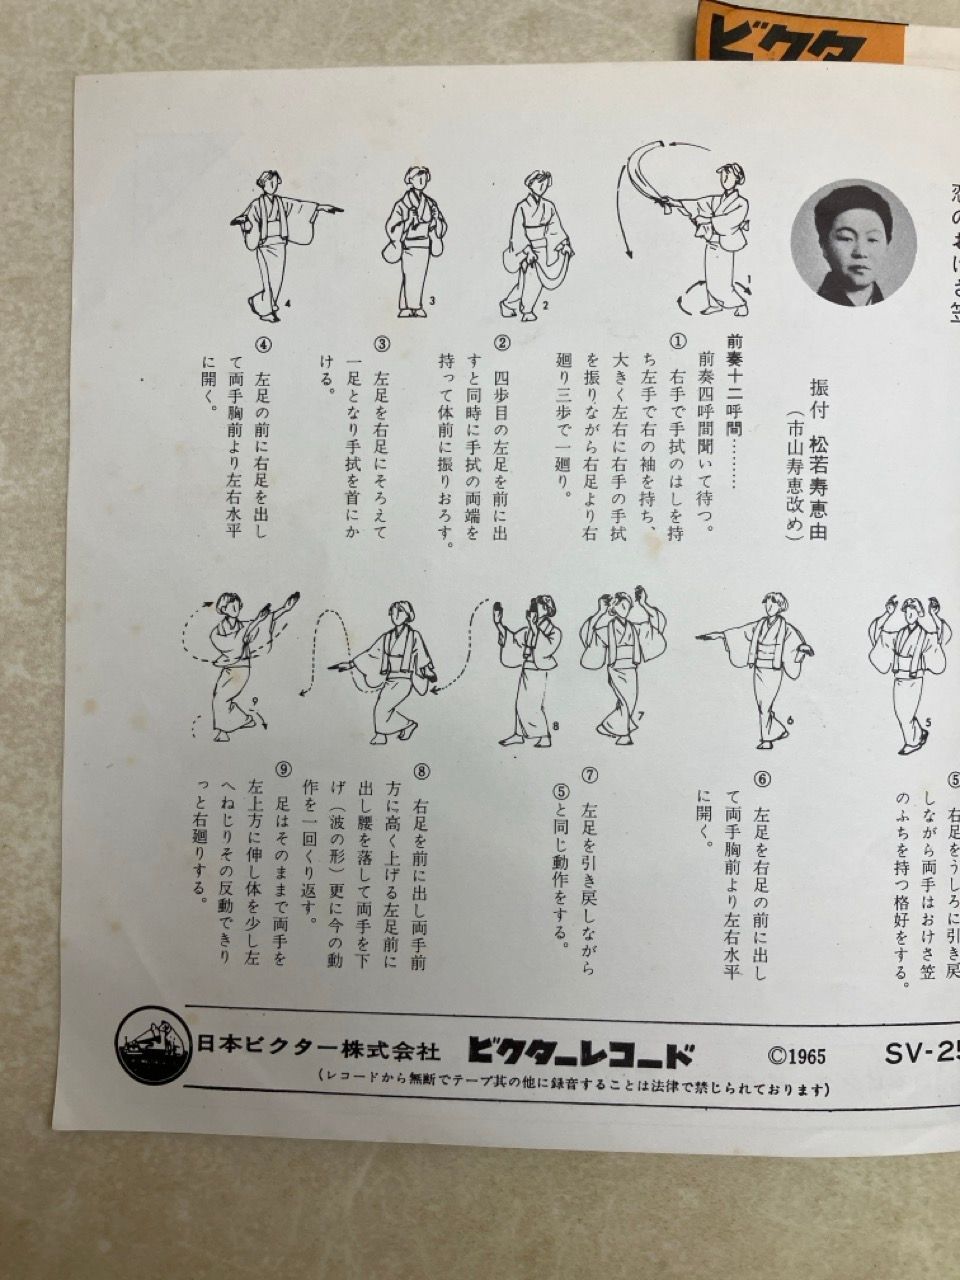 ビクタ
恋のおけさ笠
振付 松若寿恵由
(市山寿恵改め)
前奏十二呼間…………
前奏四呼間聞いて待つ。
① 右手で手拭のはしを持
ち左手で右の袖を持ち、
大きく左右に右手の手拭
を振りながら右足より右
廻り三歩で一廻り。
② 四歩目の左足を前に出
すと同時に手拭の両端を
持って体前に振りおろす。
③ 左足を右足にそろえて
一足となり手拭を首にか
ける。
④ 左足の前に右足を出し
て両手胸前より左右水平
に開く。
1
2
3
4
⑤ 右足をうしろに引き戻
しながら両手はおけさ笠
のふちを持つ格好をする。
⑥ 左足を右足の前に出し
て両手胸前より左右水平
に開く。
⑦ 左足を引き戻しながら
⑤と同じ動作をする。
⑧ 右足を前に出し両手前
方に高く上げる左足前に
出し腰を落して両手を下
げ(波の形)更に今の動
作を一回くり返す。
⑨ 足はそのままで両手を
左上方に伸し体を少し左
へねじりその反動できり
っと右廻りする。
5
6
7
8
9
日本ビクター株式会社 ビクターレコード ©1965 SV-25
(レコードから無断でテープ其の他に録音することは法律で禁じられております)